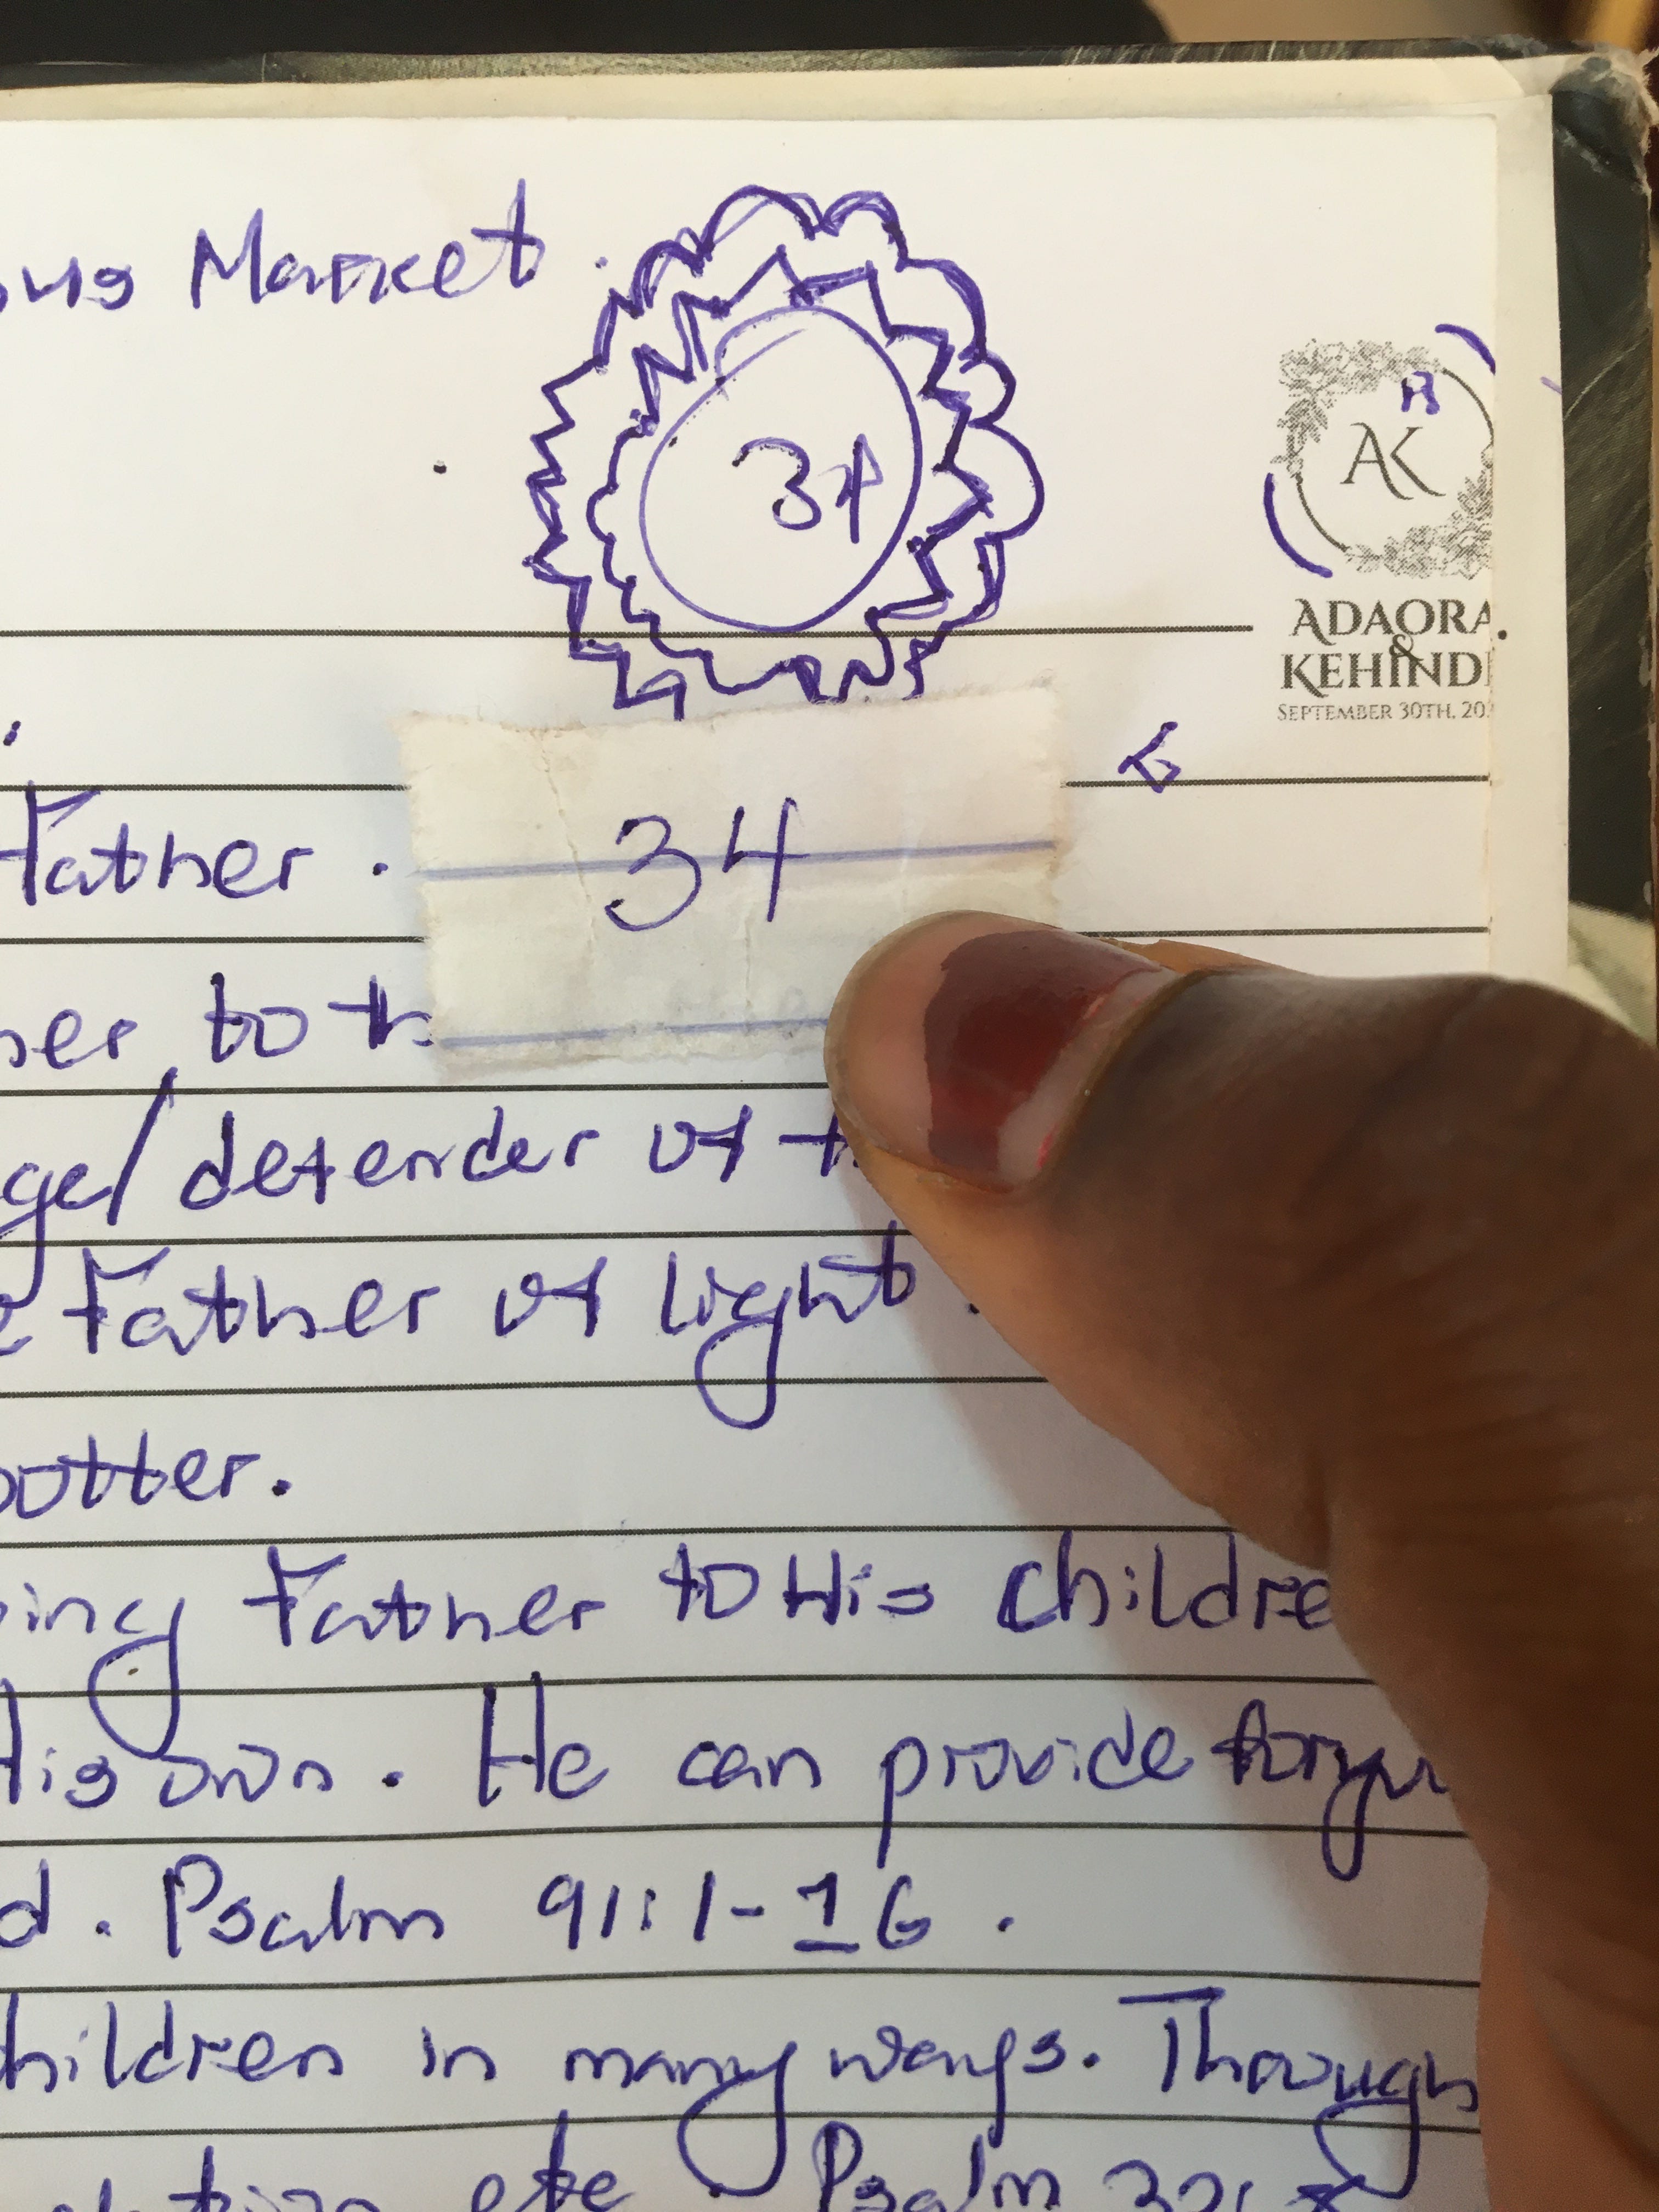 Market.
34
AK
ADAORA
&
KEHIND
SEPTEMBER 30TH, 20
Father.
to th
/defender of t
Father of light.
potter.
Father to His childre
His own. He can provide for
d. Psalm 91:1-16.
hildren in many ways. Through
etc Psalm 32:8